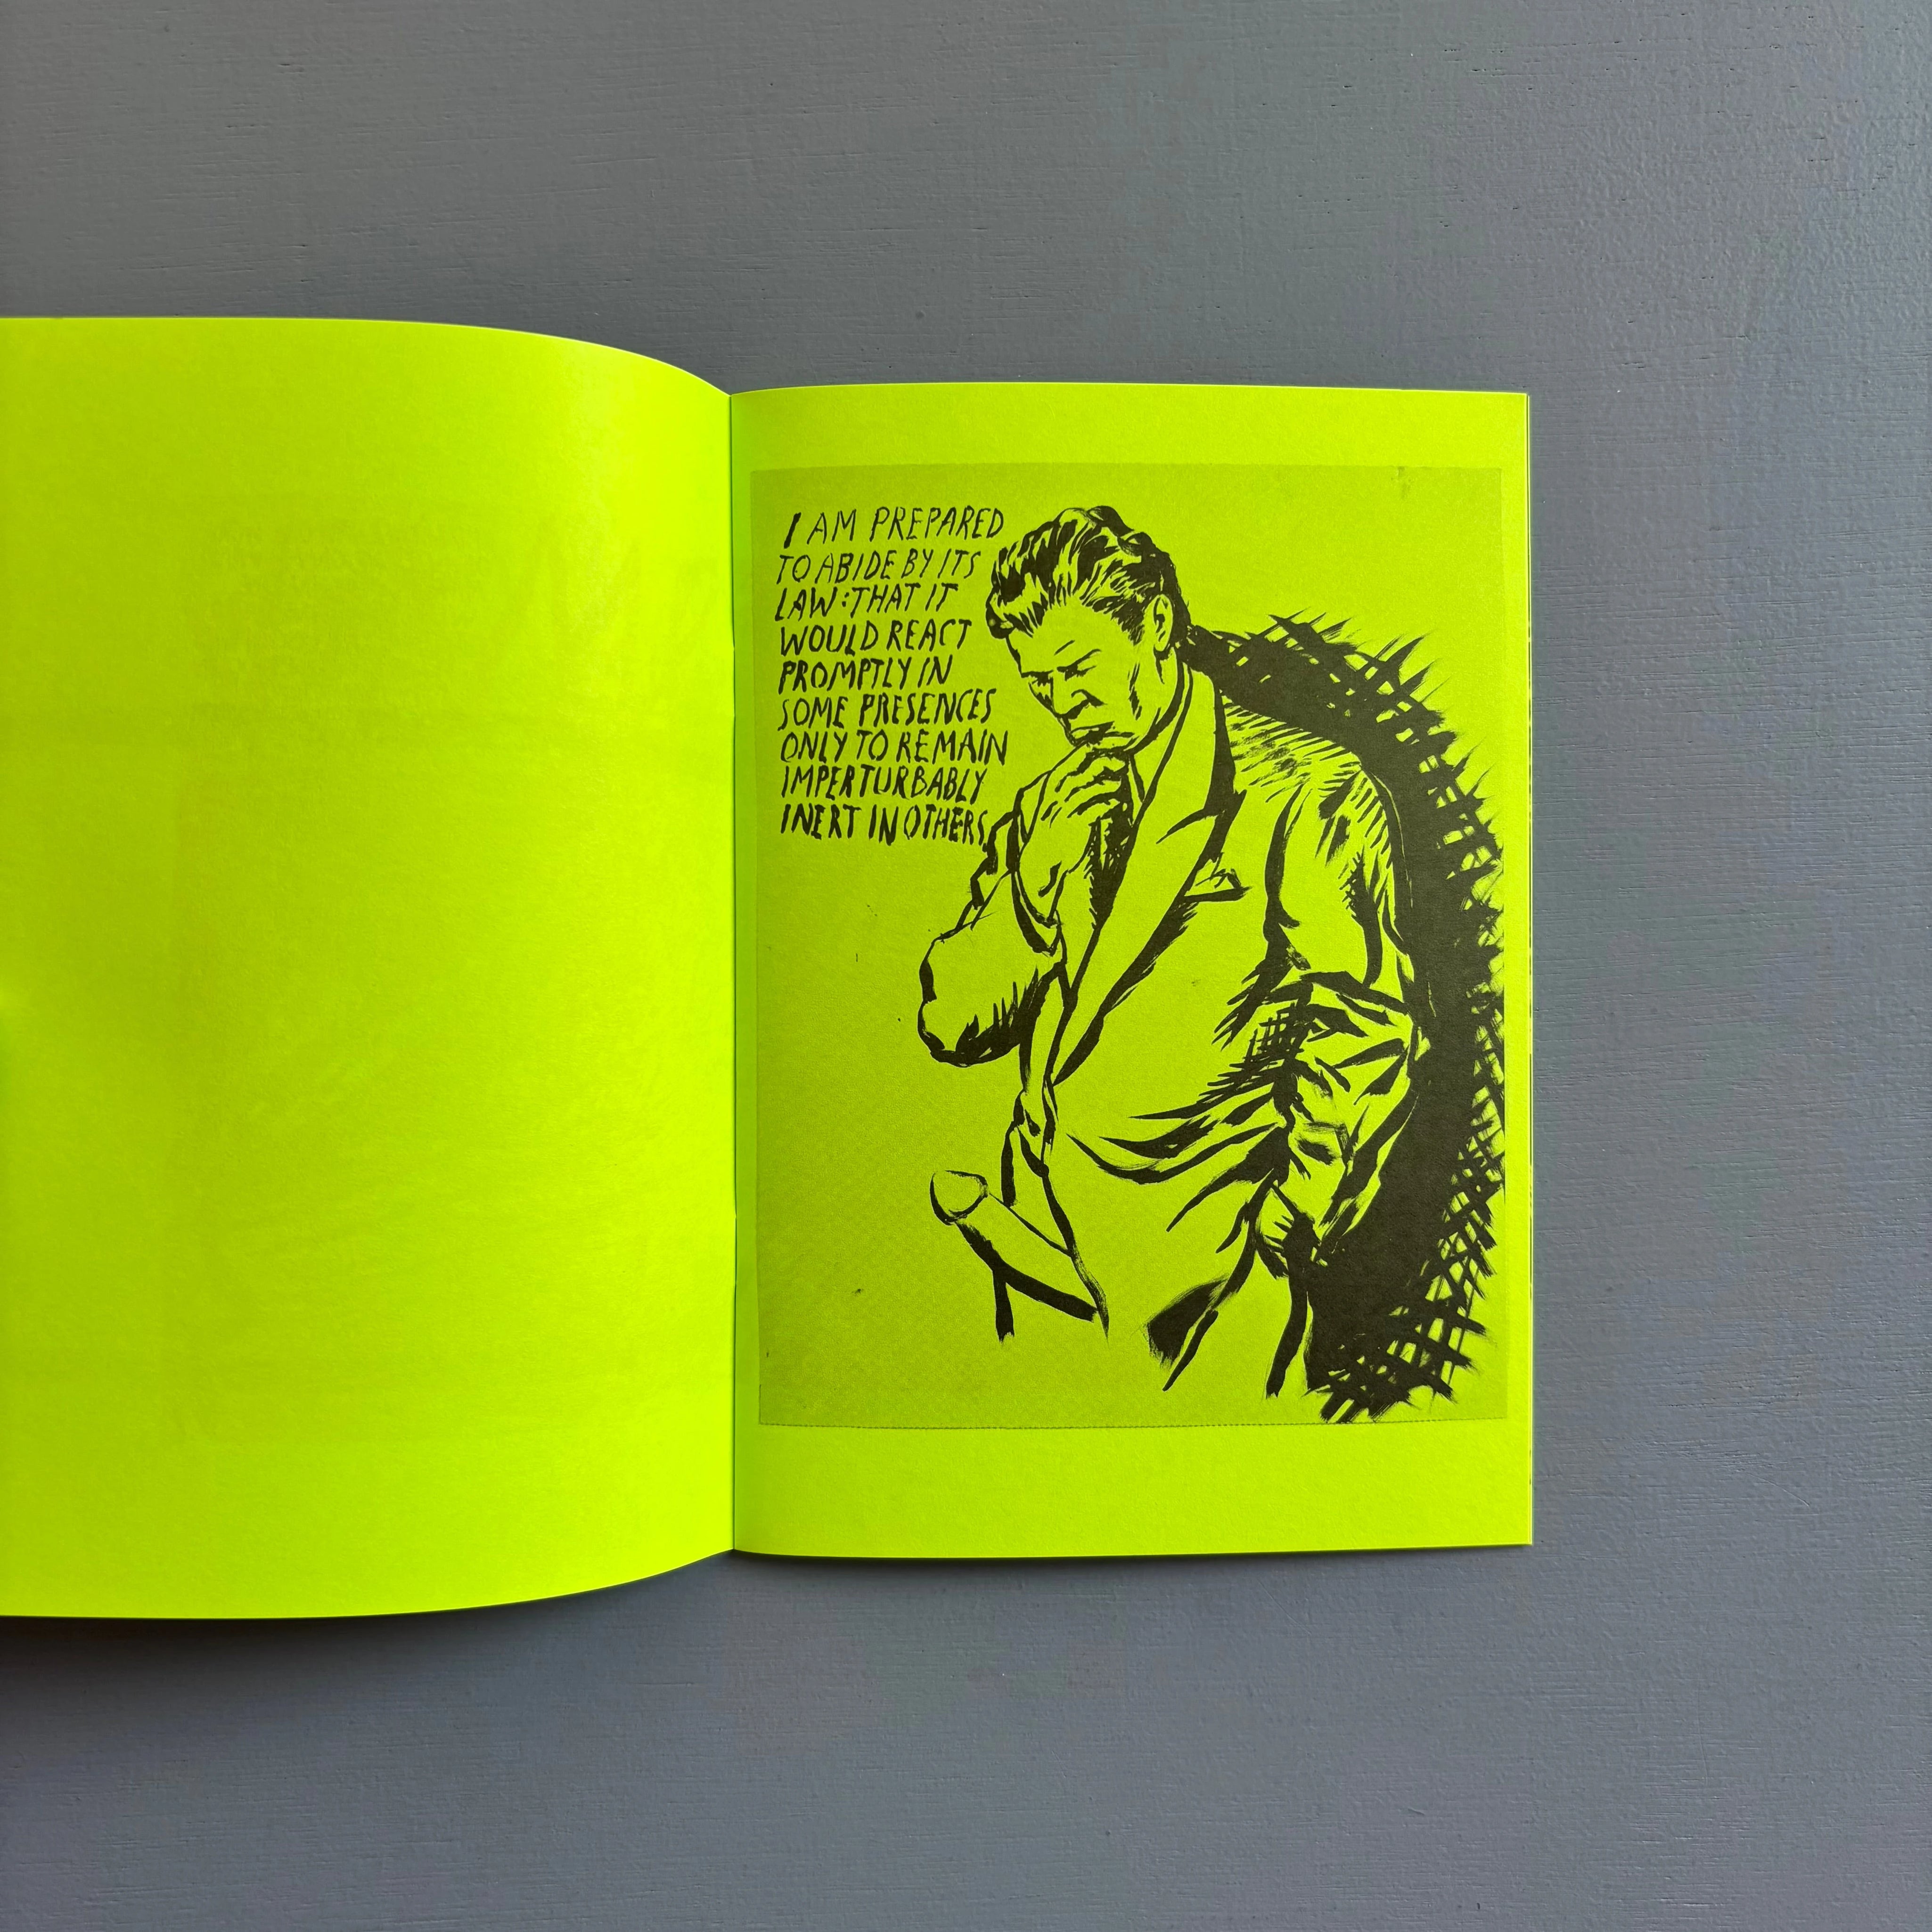 I AM PREPARED
TO ABIDE BY ITS
LAW: THAT IT
WOULD REACT
PROMPTLY IN
SOME PRESENCES
ONLY TO REMAIN
IMPERTURBABLY
INERT IN OTHERS.